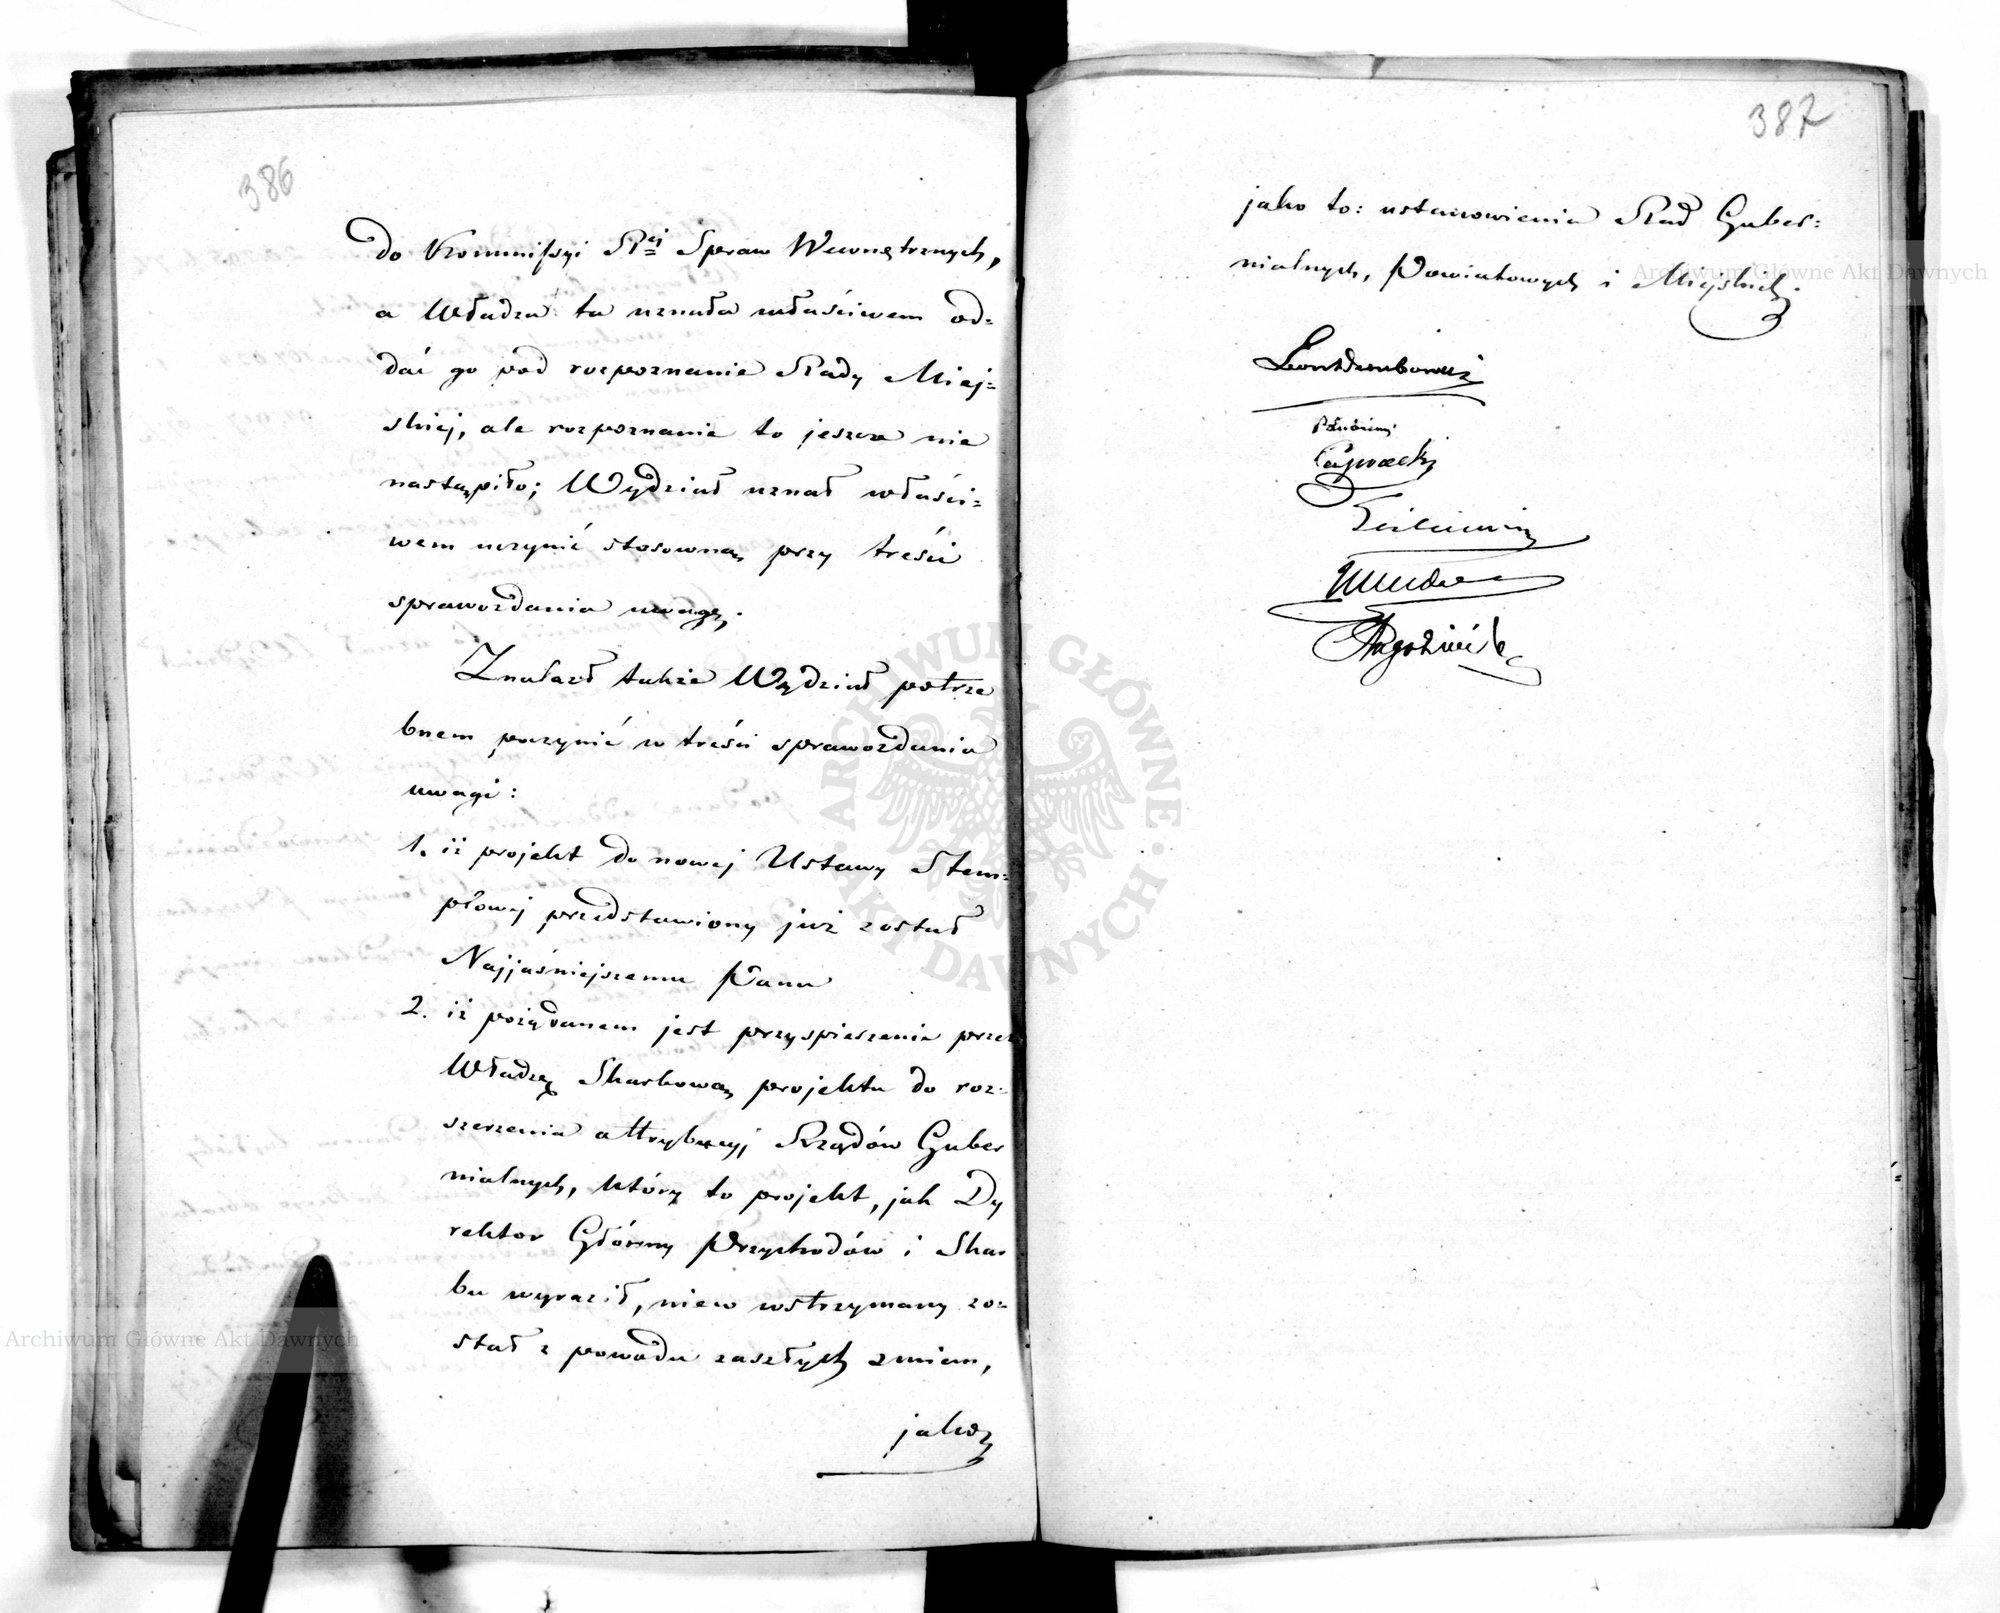 386
do Kommissyi Rej Spraw Wewnętrznych,
a Władza ta uznała właściwem od=
dać go pod rozpoznanie Rady Miej=
skiej, ale rozpoznanie to jeszcze nie
nastąpiło; Wydział uznał właści=
wem uczynić stosowną przy treści
sprawozdania uwagę.
Znalazł także Wydział potrze
bnem poczynić w treści sprawozdania
uwagi:
1. iż projekt do nowej Ustawy Stem=
plowej przedstawiony już został
Najjaśniejszemu Panu
2. iż pożądanem jest przyspieszenie przez
Władzę Skarbową projektu do roz=
szerzenia attrybucyj Rządów Guber
nialnych, który to projekt, jak Dy
rektor Główny Przychodów i Skar
bu wyraził, nieco wstrzymany zo=
stał z powodu zaszłych zmian,
jako
387
jako to: ustanowienia Rad Guber=
nialnych, Powiatowych i Miejskich
Archiwum Główne Akt Dawnych
ARCHIWUM GŁÓWNE AKT DAWNYCH
Archiwum Główne Akt Dawnych